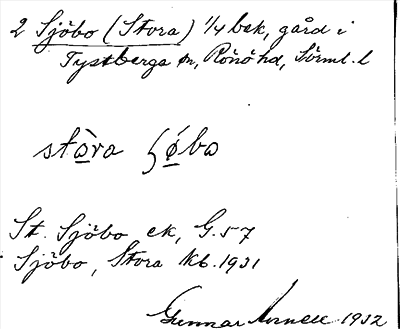 2 Sjöbo (Stora) 1/4 bek, gård i
Tystberga sn, Rönö hd, Sörml. l
stòra ʃóbo
St. Sjöbo ek, G. 57
Sjöbo, Stora kb. 1931
Gunnar 1932